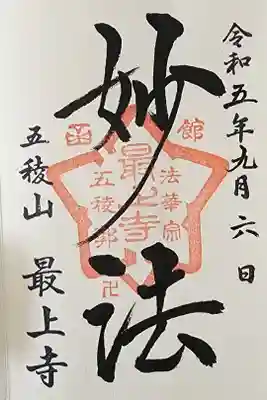 令和五年九月六日
妙法
函館
最上寺
法華宗
五稜郭
卍
五稜山
最上寺